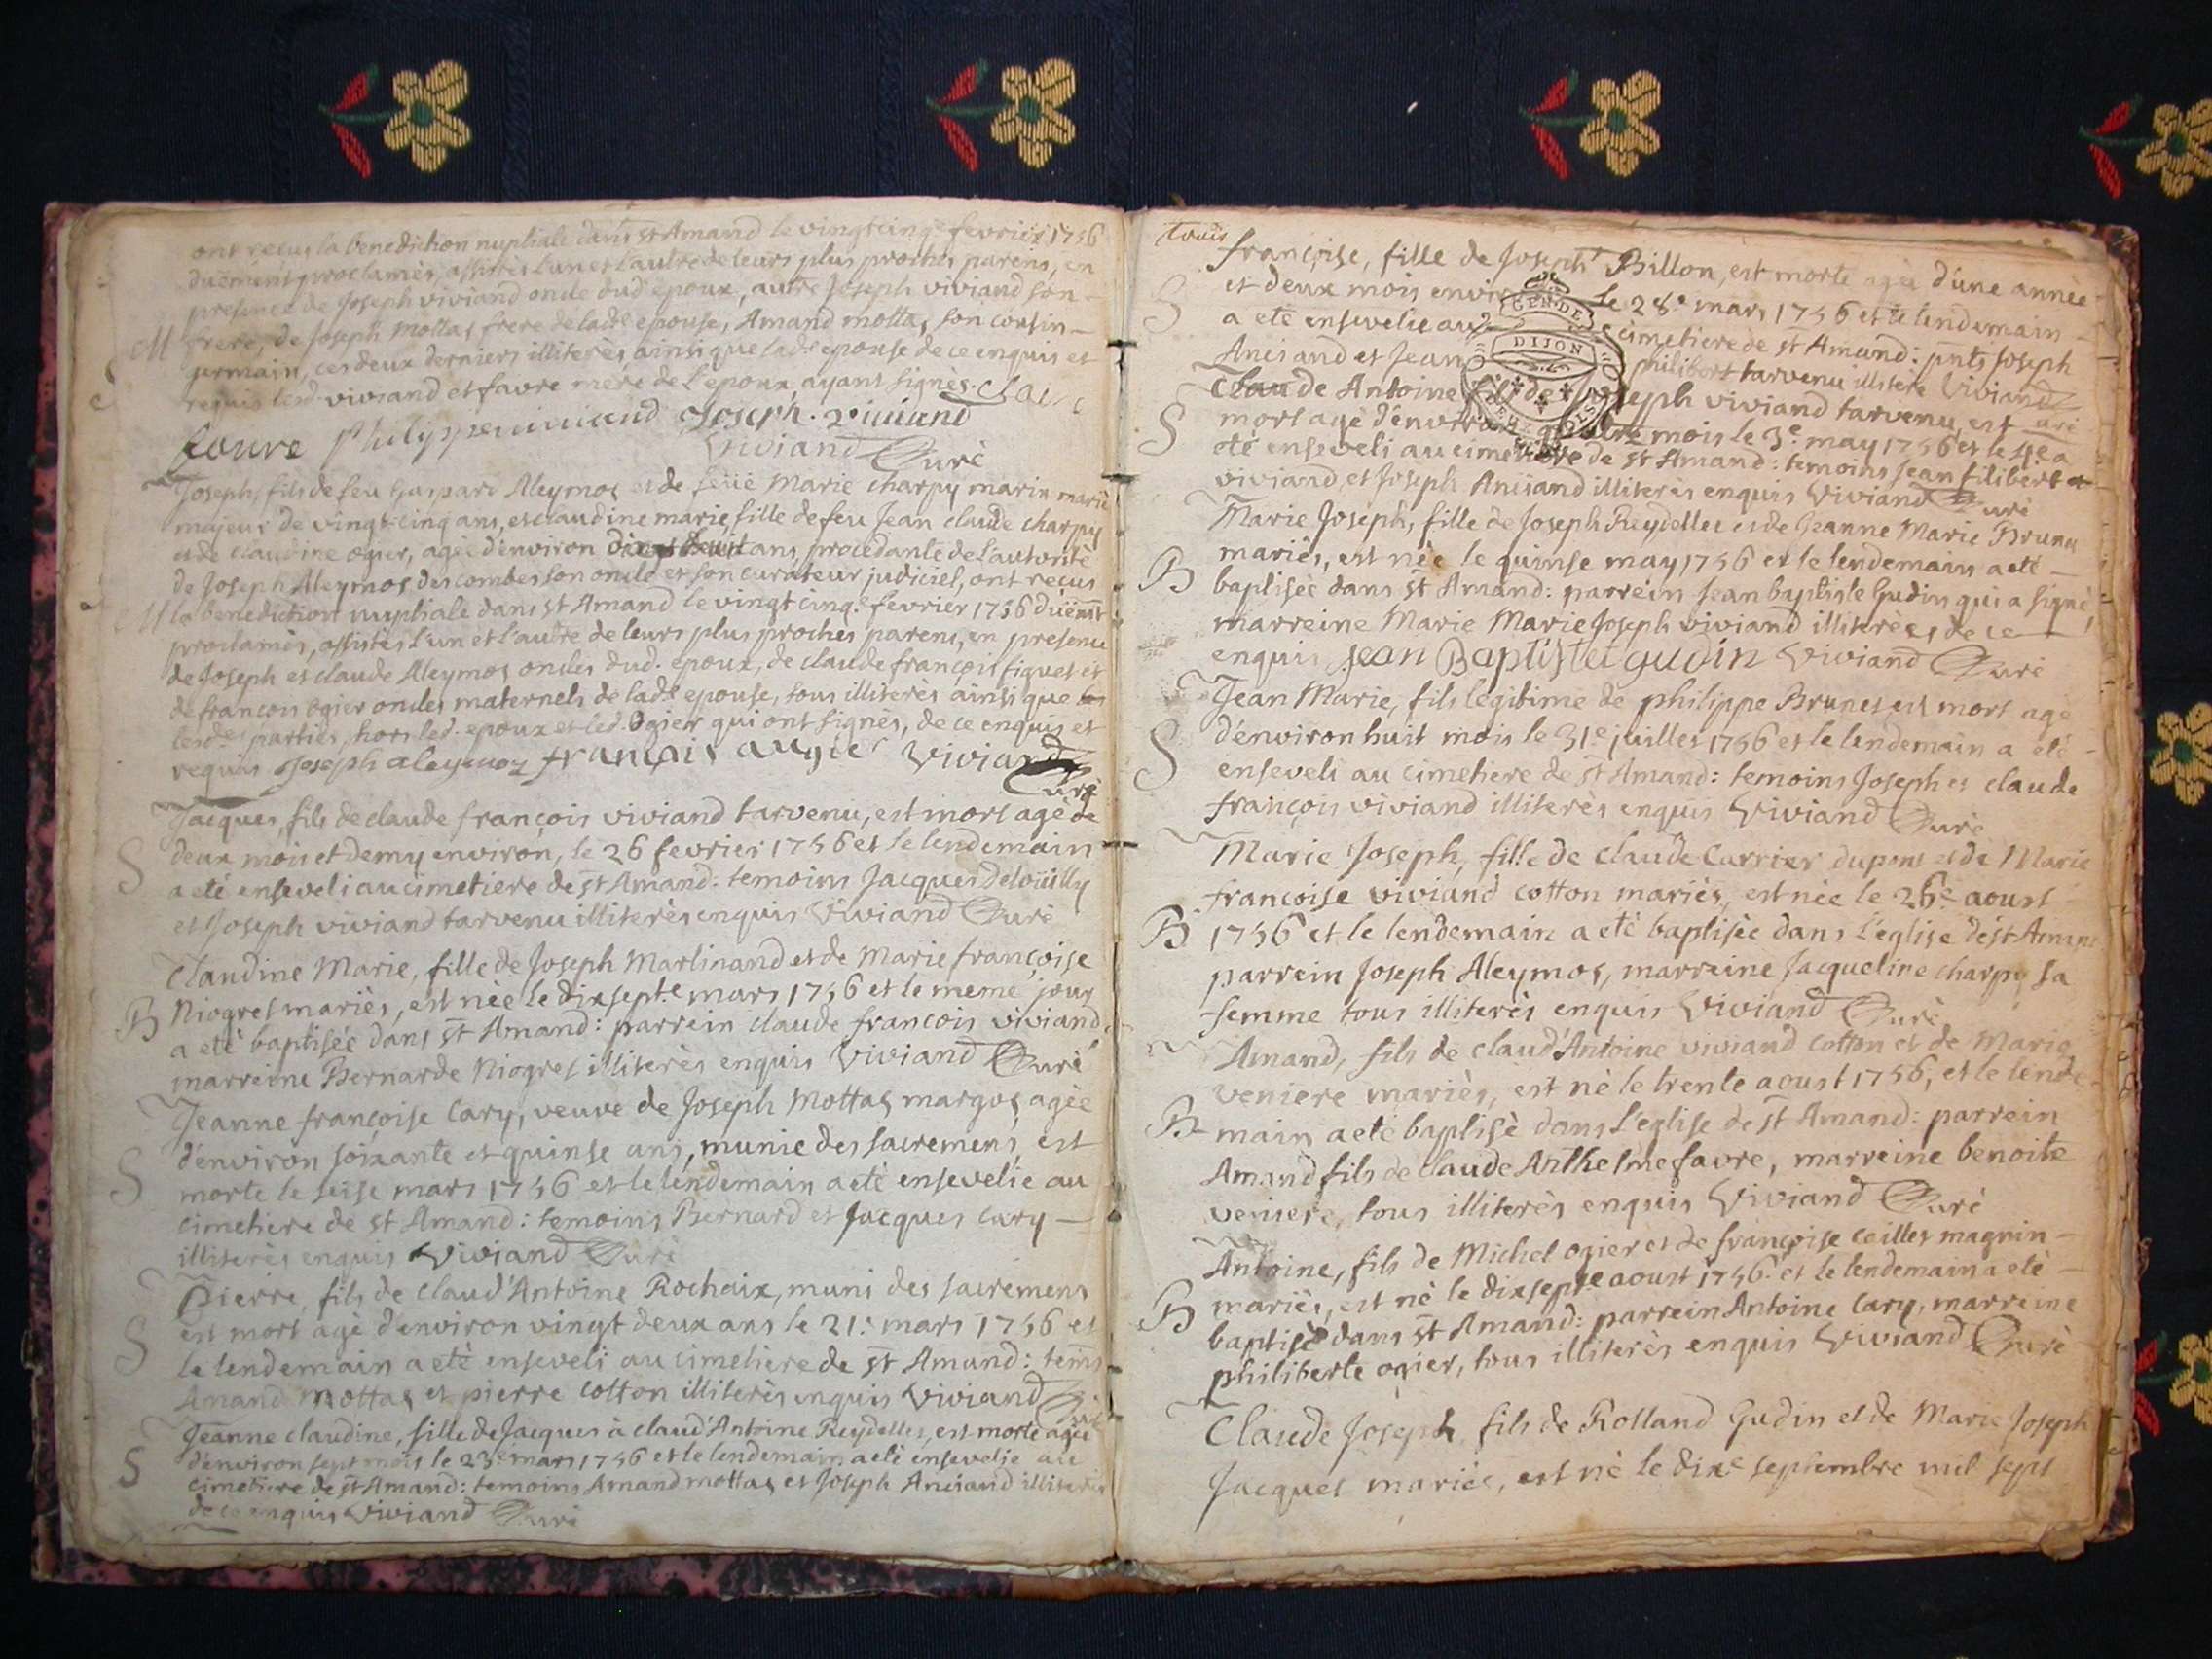 ont reçus la benediction nuptiale dans st Amand le vingtcinqe fevrier 1756
duëment proclamés, assistés l'un et l'autre de leurs plus proches parens, en
presence de Joseph viviand oncle dud. epoux, autre Joseph viviand son
M frere, de Joseph mottas frere de lade epouse, Amand mottas son cousin
germain, ces deux derniers illiterès ainsi que lade epouse de ce enquis et
requis lesd. viviand et favre mére de l'epoux ayant signès. Clau
favre philippe viviand Joseph. viviand
Viviand Curè
Joseph, fils de feu Gaspard Aleymos et de feüe Marie charpy marin mariè
majeur de vingt-cinq ans, et claudine marie, fille de feu Jean claude charpy
et de claudine ogier, agèe d'environ ans, procedante de l'autoritè
de Joseph Aleymos descombes son oncle et son curateur judiciel, ont reçus
M la benediction nuptiale dans st Amand le vingt cinqe fevrier 1756 duëmt
proclamès, assistès l'un et l'autre de leurs plus proches parens, en presence
de Joseph et claude Aleymos oncles dud. epoux, de claude françois figuet et
de françois ogier oncles maternels de lade epouse, tous illiterès ainsi que
lesdes parties, hors led. epoux et led. Ogier qui ont signès, de ce enquis et
requis Joseph aleymoz françois augier Viviand
Curè
Jacques, fils de claude françois viviand tarvenu, est mort agè de
S deux mois et demy environ, le 26 fevrier 1756 et le lendemain
a etè enseveli au cimetiere de st Amand: temoins Jacques Deloüilly
et Joseph viviand tarvenu illiterès enquis Viviand Curè
Claudine Marie, fille de Joseph Marlinand et de Marie françoise
B Niogret mariès, est nèe le dixsepte mars 1756 et le meme jour
a etè baptisèe dans st Amand: parrein claude françois viviand,
marreine Bernarde Niogret illiterès enquis Viviand Curè
Jeanne françoise Cary, veuve de Joseph Mottas margos, agèe
S d'environ soixante et quinse ans, munie des sacremens, est
morte le seise mars 1756 et le lendemain a etè ensevelie au
cimetiere de st Amand: temoins Bernard et Jacques Cary
illiterès enquis Viviand Curè
Pierre, fils de Claud'Antoine Rochaix, muni des sacremens
S est mort agè d'environ vingt deux ans le 21e mars 1756 et
le lendemain a etè enseveli au cimetiere de st Amand: tems
Amand Mottas et pierre Cotton illiterès enquis Viviand Curè
Jeanne claudine, fille de Jacques à claud'Antoine Reydellet, est morte agèe
S d'environ sept mois le 23e mars 1756 et le lendemain a etè ensevelie au
cimetiere de st Amand: temoins Amand mottas et Joseph Anciand illiterès
de ce enquis Viviand Curè
trois
françoise, fille de Joseph Billon, est morte agèe d'une annèe
S et deux mois envir le 28e mars 1756 et le lendemain
a etè ensevelie au cimetiere de st Amand: pnts Joseph
Anciand et Jean philibert tarvenu illiterè Viviand
GENDE
DIJON
Claude Antoine fils de Joseph viviand tarvenu, est urè
S mort agè d'environ quatre mois le 3e may 1756 et le 4e a
etè enseveli au cimetiere de st Amand: temoins Jean filibert
viviand, et Joseph Anciand illiterès enquis Viviand Curè
Marie Joseph, fille de Joseph Reydellet et de Jeanne Marie Brunet
mariès, est nèe le quinse may 1756 et le lendemain a etè
B baptisèe dans st Amand: parrein Jean baptiste Gudin qui a signè,
marreine Marie Marie Joseph viviand illiterèes de ce
enquis Jean Baptiste gudin Viviand Curè
Jean Marie, fils legitime de philippe Brunet est mort agè
S d'environ huit mois le 31e juillet 1756 et le lendemain a etè
enseveli au cimetiere de st Amand: temoins Joseph et claude
françois viviand illiterès enquis Viviand Curè
Marie Joseph, fille de Claude Carrier dupont et de Marie
françoise viviand cotton mariès, est nèe le 26e aoust
B 1756 et le lendemain a etè baptisèe dans l'eglise de st Amand
parrein Joseph Aleymos, marreine Jacqueline charpy sa
femme tous illiterès enquis Viviand Curè
Amand, fils de claud'Antoine viviand cotton et de Marie
veniere mariès, est nè le trente aoust 1756, et le lende
B main a etè baptisè dans l'eglise de st Amand: parrein
Amand fils de claude Anthelme favre, marreine benoite
veniere, tous illiterès enquis Viviand Curè
Antoine, fils de Michel ogier et de françoise ceillet magnin
B mariès, est nè le dixsepte aoust 1756. et le lendemain a etè
baptisè dans st Amand: parrein Antoine Cary, marreine
philiberte ogier, tous illiterès enquis Viviand Curè
Claude Joseph fils de Rolland Gudin et de Marie Joseph
Jacquet mariès, est nè le dixe septembre mil sept